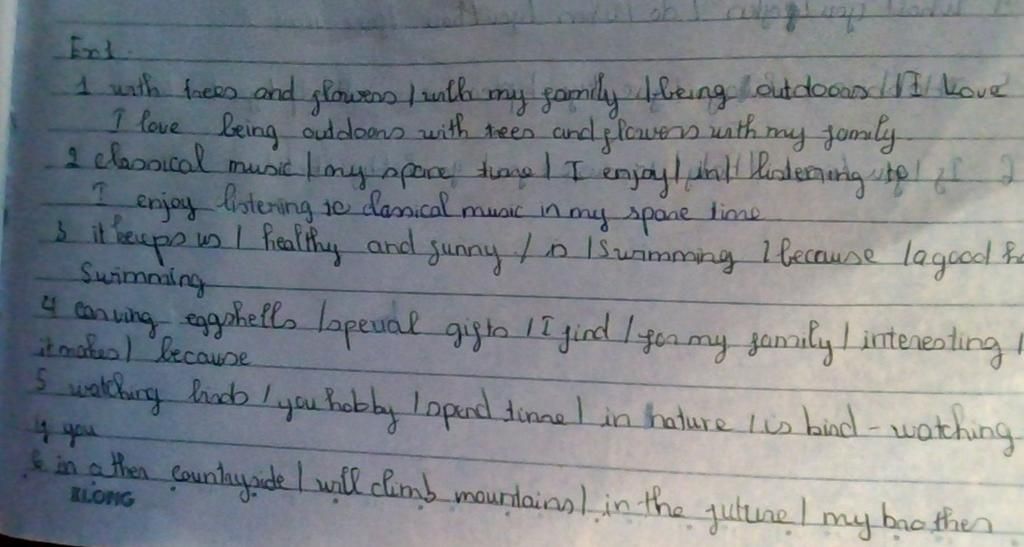 Ex1.
1 with trees and flowers / with my family / being / outdoors / I / Love
I love being outdoors with trees and flowers with my family
2 classical music / my spare time / I enjoy / in / listening to /
I enjoy listening to classical music in my spare time
3 it keeps us / healthy and sunny / is / Swimming / because / a good
Swimming
4 carving eggshells / special gifts / I find / for my family / interesting /
it makes / because
5 watching birds / you hobby / spend time / in nature / is bird - watching
if you
6 in a ther countryside / will climb mountains / in the future / my brother
XLONG